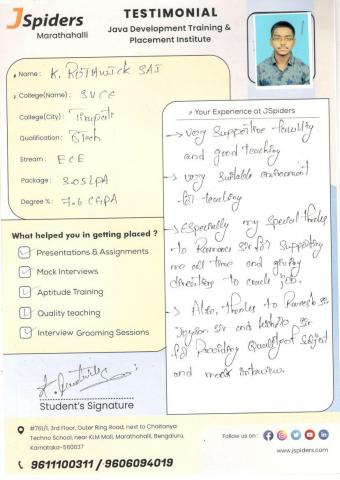 JSpiders
Marathahalli
TESTIMONIAL
Java Development Training &
Placement Institute
Name : K. ROTHWICK SAI
College(Name) : SVCE
College(City) : Tirupati
Qualification : BTech
Stream : ECE
Package : 3.05LPA
Degree % : 7.6 CGPA
What helped you in getting placed ?
Presentations & Assignments
Mock Interviews
Aptitude Training
Quality teaching
Interview Grooming Sessions
Student's Signature
Your Experience at JSpiders
→ Very Supportive faculty
and good teaching
→ very suitable environment
for teaching
→ Especially my Special thanks
to Ramana Sir for Supporting
me all time and giving
directions to crack job.
→ Also, thanks to Ramesh Sir
Sir and Sir
for Providing Subject
and mock interviews.
#761/1, 3rd Floor, Outer Ring Road, next to Chaitanya
Techno School, near KLM Mall, Marathahalli, Bengaluru,
Karnataka-560037
9611100311 / 9606094019
Follow us on :
www.jspiders.com